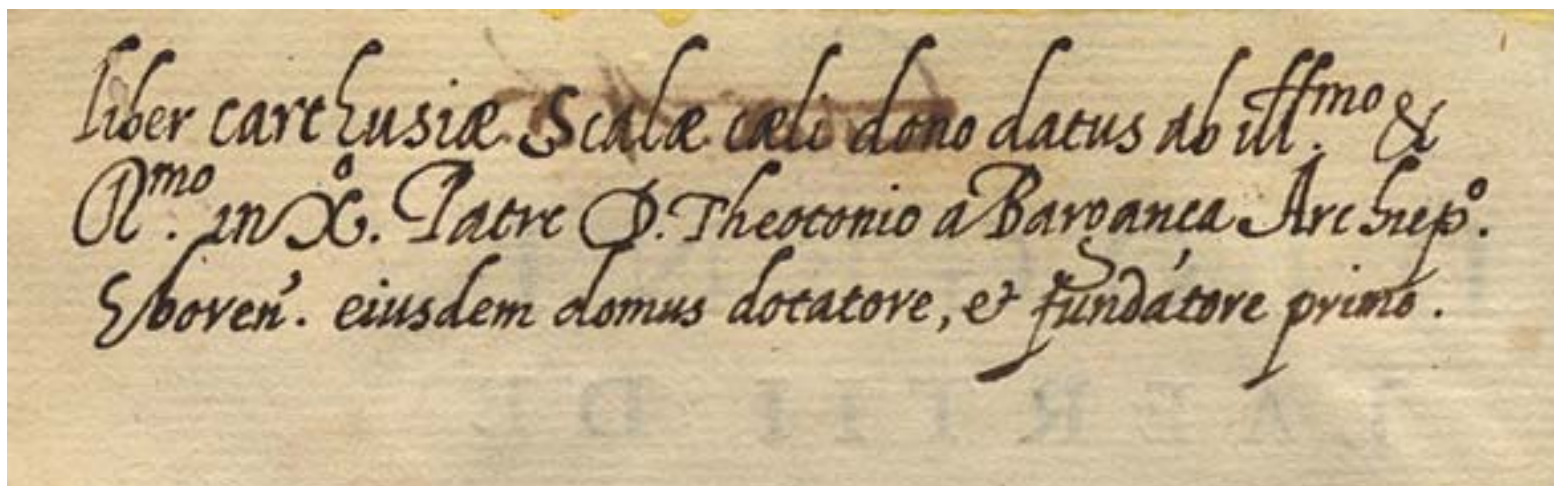 liber carthusiæ Scalæ cæli dono datus ab ill.ᵐᵒ &
R.ᵐᵒ in Xº. Patre D. Theotonio a Barganca Archiepº.
Eboreñ. eiusdem domus dotatore, et fundátore primo.